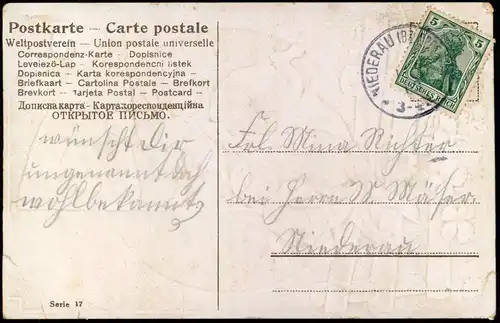 Postkarte — Carte postale
Weltpostverein — Union postale universelle
Correspondenz-Karte – Dopisnice
Levelező-Lap – Korespondencni listek
Dopisnica – Karta korespondencyjna –
Briefkaart – Cartolina Postale – Brefkort
Brevkort – Tarjeta Postal – Postcard –
Дописна карта – Картахореспонденційна
ОТКРЫТОЕ ПИСЬМО.
wünscht Dir
ungenannt doch
wohlbekannt
Serie 17
NIEDERAU
5 5
DEUTSCHES REICH
Frl. Mina Richter
bei Herrn
Niederau